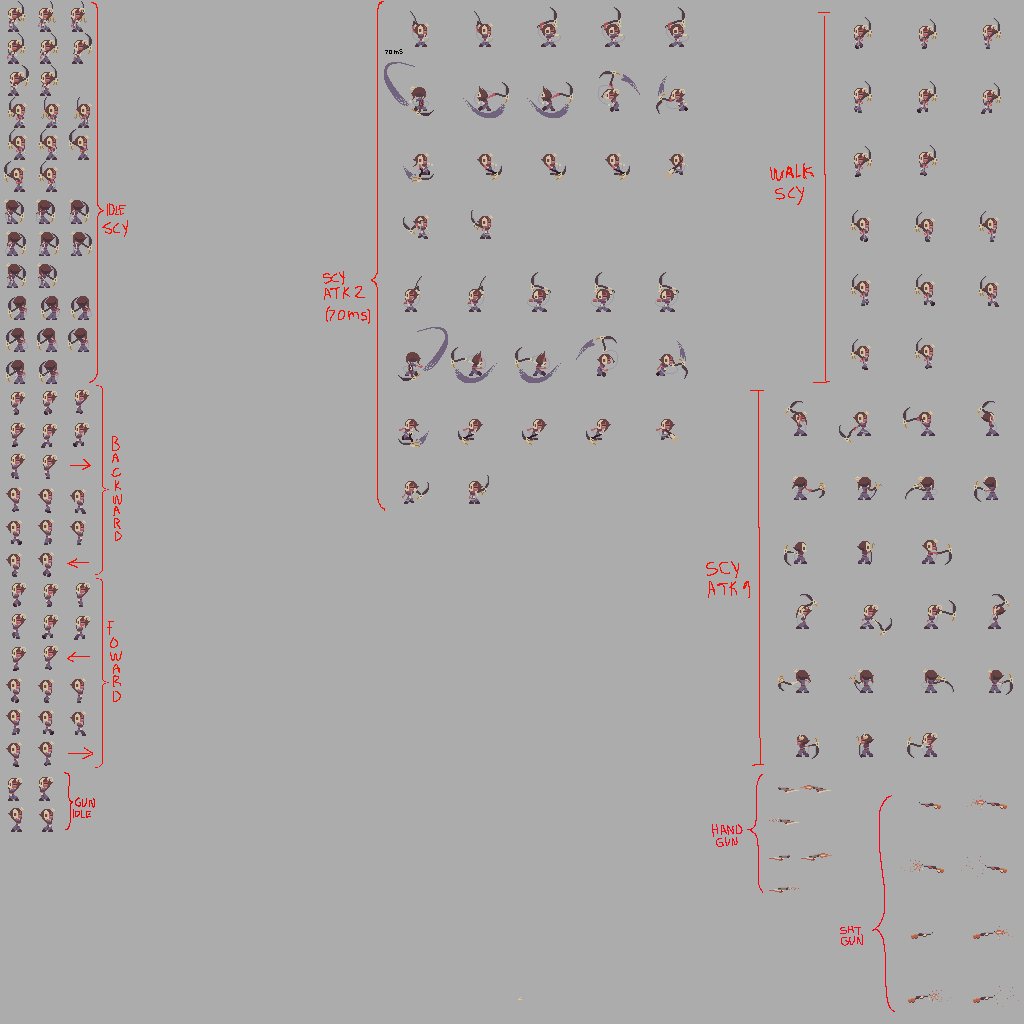 IDLE
SCY
BACKWARD
FOWARD
GUN
IDLE
70mS
SCY
ATK2
(70ms)
WALK
SCY
SCY
ATK1
HAND
GUN
SHT
GUN